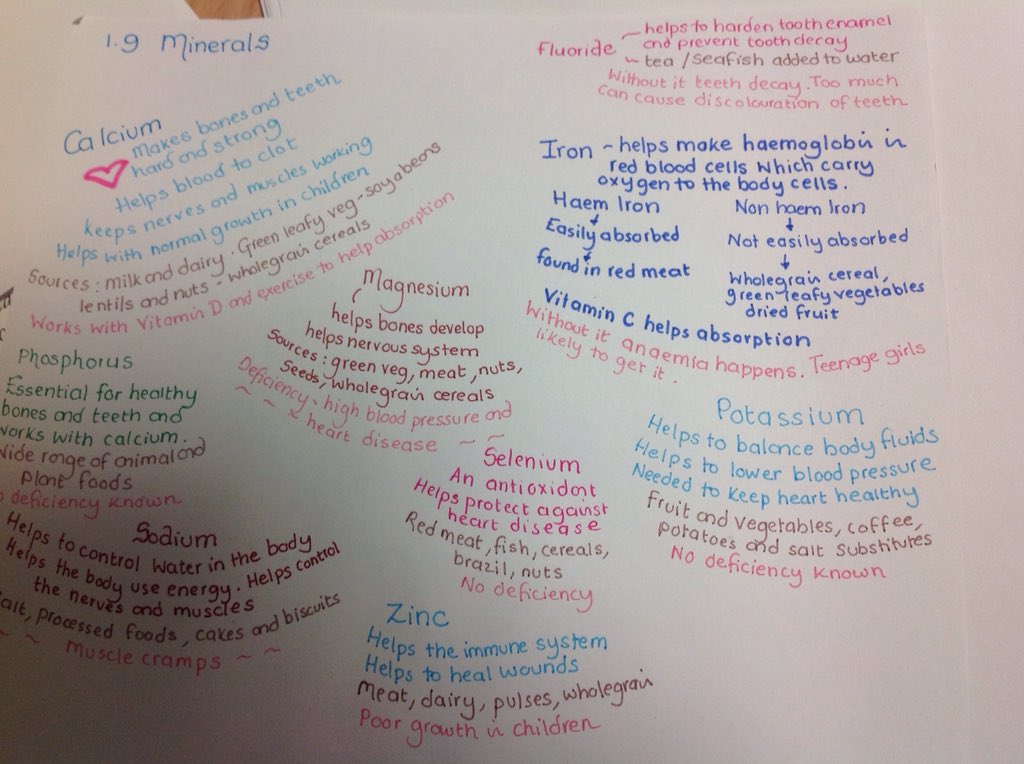 1.9 Minerals
Calcium
Makes bones and teeth
hard and strong
Helps blood to clot
keeps nerves and muscles working
Helps with normal growth in children
Sources : milk and dairy . Green leafy veg - soya beans
lentils and nuts - wholegrain cereals
Works with Vitamin D and exercise to help absorption
Fluoride ~ helps to harden tooth enamel
and prevent tooth decay
~ tea / seafish added to water
Without it teeth decay . Too much
can cause discolouration of teeth.
Iron ~ helps make haemoglobin in
red blood cells which carry
oxygen to the body cells .
Haem Iron
Easily absorbed
found in red meat
Non haem Iron
Not easily absorbed
wholegrain cereal,
green leafy vegetables
dried fruit
Vitamin C helps absorption
Without it anaemia happens. Teenage girls
likely to get it .
Magnesium
helps bones develop
helps nervous system
Sources : green veg, meat, nuts,
Seeds, wholegrain cereals
Deficiency - high blood pressure and
~ ~ heart disease ~ ~
Phosphorus
Essential for healthy
bones and teeth and
works with calcium .
Wide range of animal and
plant foods
deficiency known
Selenium
An antioxidant
Helps protect against
heart disease
Red meat, fish, cereals,
brazil, nuts
No deficiency
Potassium
Helps to balance body fluids
Helps to lower blood pressure
Needed to keep heart healthy
Fruit and vegetables, coffee,
potatoes and salt substitutes
No deficiency known
Sodium
Helps to control water in the body
Helps the body use energy . Helps control
the nerves and muscles
salt, processed foods, cakes and biscuits
~ ~ muscle cramps ~ ~
Zinc
Helps the immune system
Helps to heal wounds
Meat, dairy, pulses, wholegrain
Poor growth in children